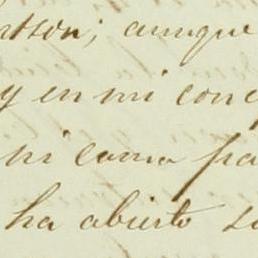 rtson; aunque
y en mi conc
ni como pa
ha abierto